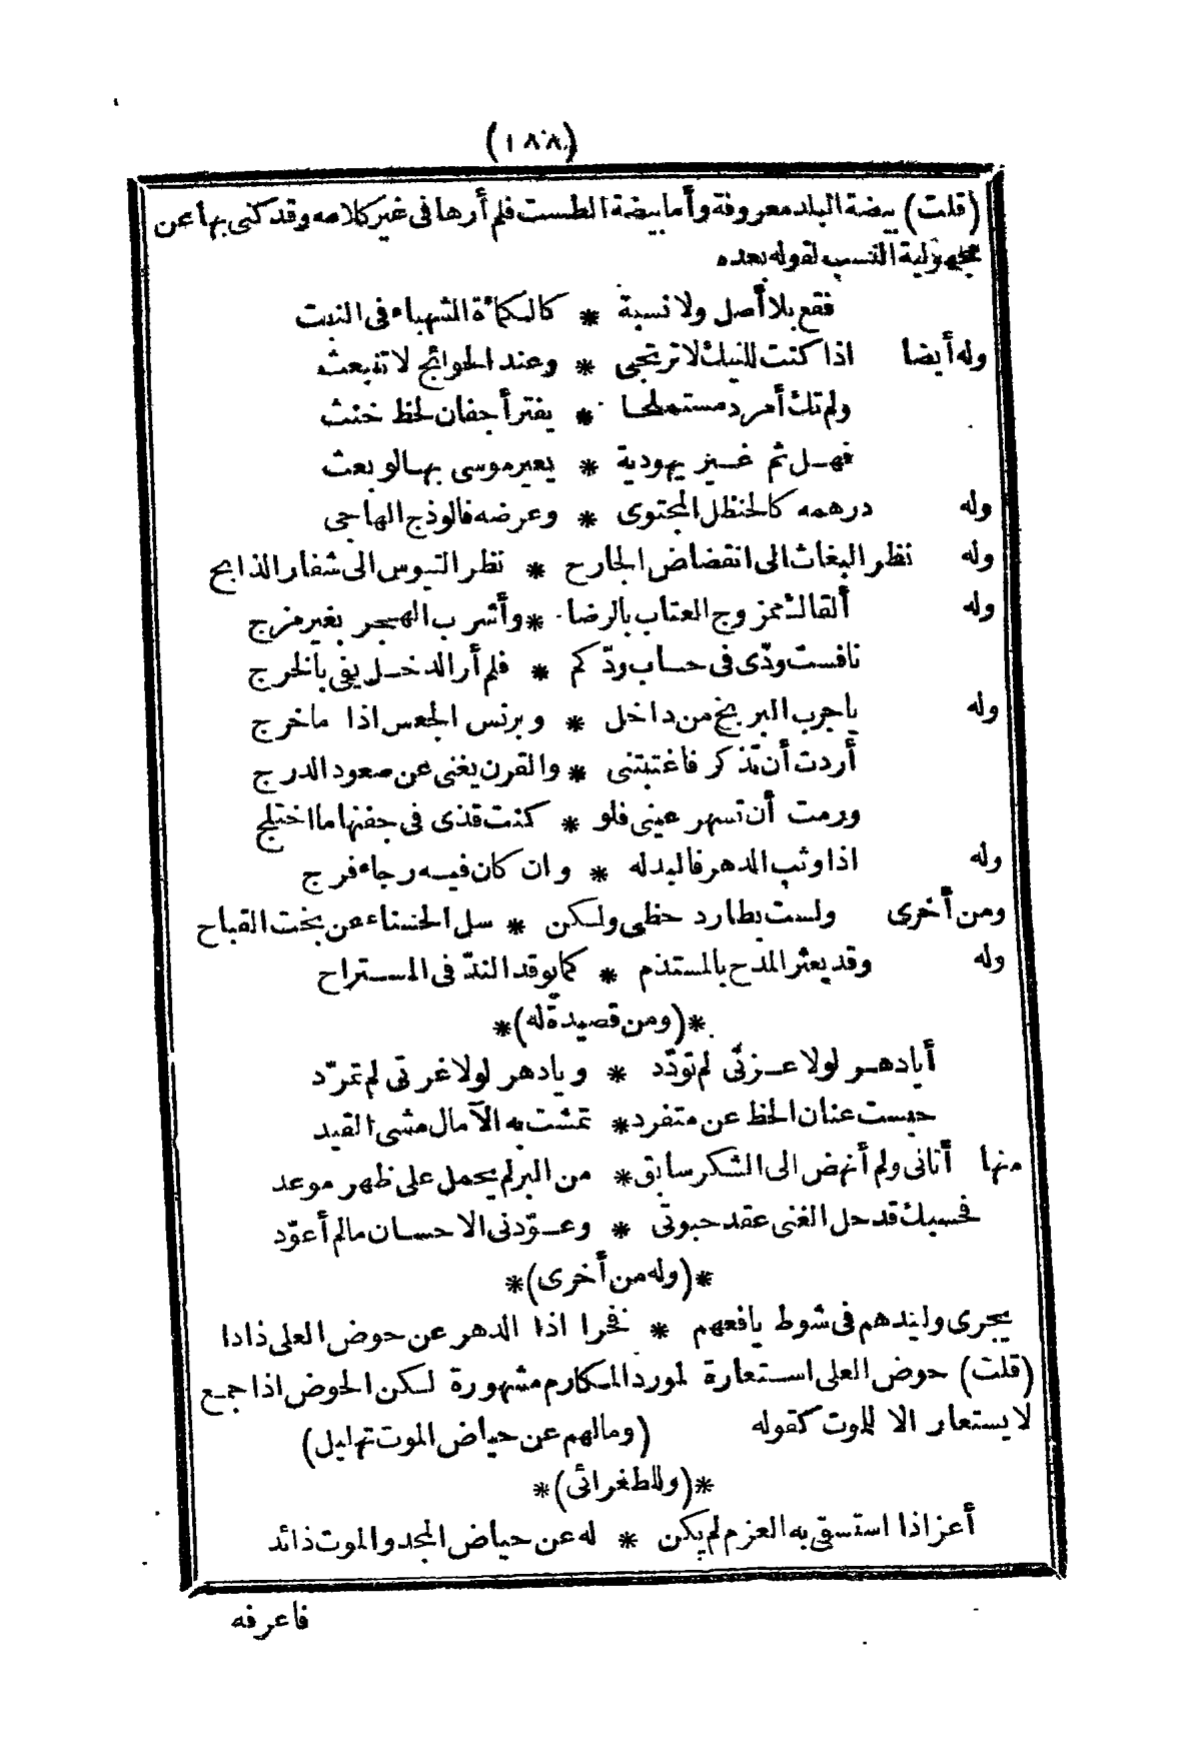 (١٨٨)
(قلت) بيضة البلد معروفة وأما بيضة الطست فلم أرها في غير كلامه وقد كنى بها عن
مجهولية النسب لقوله بعده
فقع بلا أصل ولا نسبة * كالكمأة الشهباء في النبت
وله أيضا اذا كنت للنيك لا ترتجى * وعند الحوائج لا تنبعث
ولم تك أمرد مستملحا * يفتر أجفان لحظ خنث
فهل ثم غير يهودية * يعير موسى بها لو بعث
وله درهمه كالحنظل المجتوى * وعرضه فالوذج الهاجى
وله نظر البغاث الى انقضاض الجارح * نظر التيوس الى شفار الذابح
وله ألقاك ممزوج العتاب بالرضا * وأشرب الهجر بغير مزج
نافست ودّى في حساب ودّكم * فلم أر الدخل يفى بالخرج
وله ياجرب البربخ من داخل * وبرنس الجعس اذا ما خرج
أردت أن تذكر فاغتبتنى * والقرن يغنى عن صعود الدرج
ورمت أن تسهر عينى فلو * كنت قذى في جفنها ما اختلج
وله اذا وثب الدهر فالبد له * وان كان فيه رجاء فرج
ومن أخرى ولست بطارد حظى ولكن * سل الحسناء عن بخت القباح
وله وقد يعثر المدح بالمستذم * كما يوقد الندّ في المستراح
*(ومن قصيدة له)*
أيادهر لولا عزتى لم تودّد * ويادهر لولا غرتى لم تمرّد
حبست عنان الحظ عن متفرد * تمشت به الآمال مشى المقيد
منها أتانى ولم أنهض الى الشكر سابق * من البر لم يحمل على ظهر موعد
فحسبك قد حل الغنى عقد حبوتى * وعوّدنى الاحسان مالم أعوّد
*(وله من أخرى)*
يجرى وليدهم في شوط يافعهم * فخرا اذا الدهر عن حوض العلى ذادا
(قلت) حوض العلى استعارة لمورد المكارم مشهورة لكن الحوض اذا جمع
لا يستعار الا للموت كقوله (ومالهم عن حياض الموت تهليل)
*(وللطغرائى)*
أعز اذا استسقى به العزم لم يكن * له عن حياض المجد والموت ذائد
فاعرفه